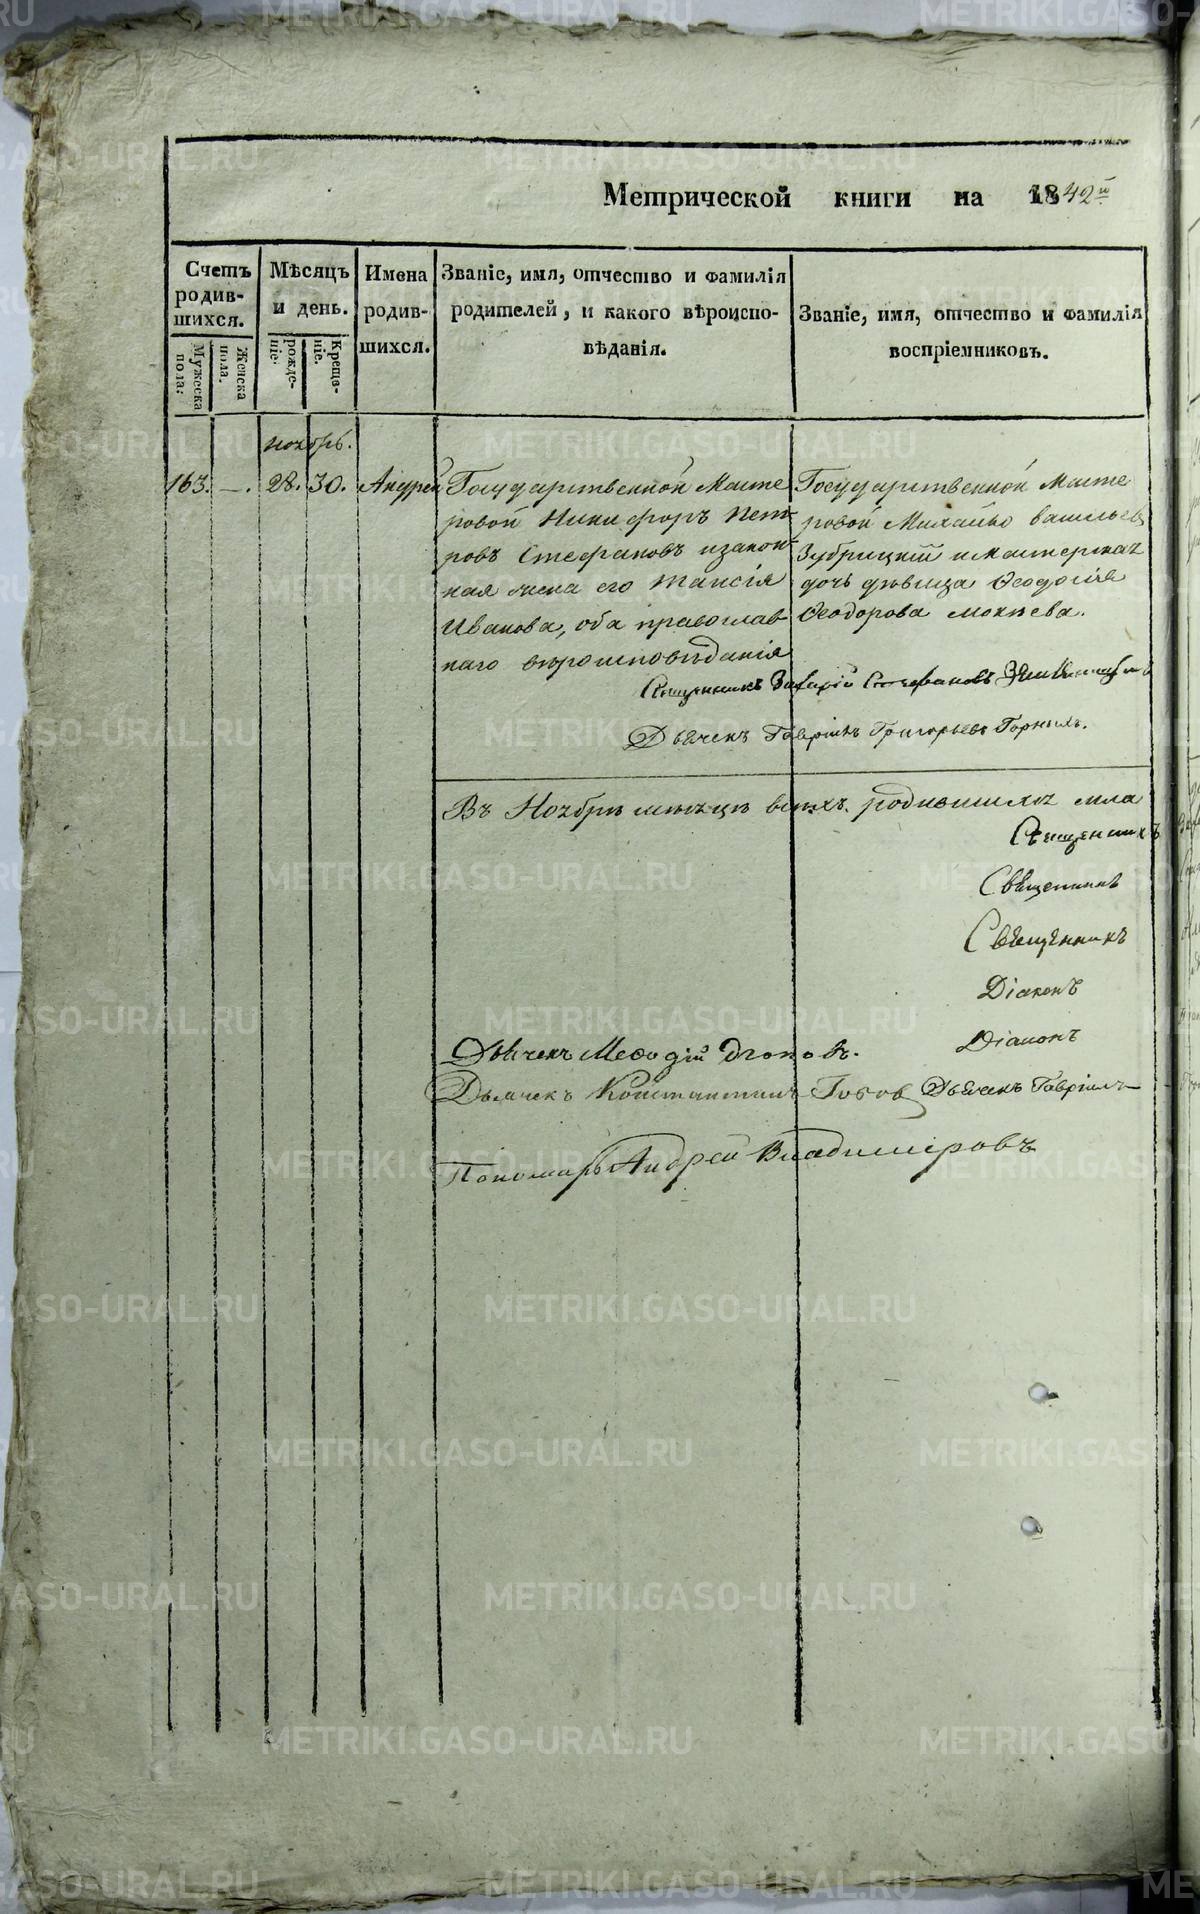 Метрической книги на 1842й
Счетъ родив-шихся.
Мужеска пола.
Женска пола.
Мѣсяцъ и день.
рожде-ніе.
Креще-ніе.
Имена родив-шихся.
Званіе, имя, отчество и фамилія
родителей, и какого вѣроиспо-
вѣданія.
Званіе, имя, отчество и фамилія
воспріемниковъ.
ноябрь.
163. —. 28. 30. Андрей
Государственной Масте
ровой Никифоръ Пет
ровъ Стефановъ и закон
ная жена его Таисія
Иванова, оба православ
наго вѣроисповѣданія
Государственной Масте
ровой Михайло Васильев
Зубрицкій и мастерска
дочь дѣвица Ѳеодосія
Ѳеодорова Мокѣева.
Священникъ Захарій Стефановъ
Дьячекъ Гавріилъ Григорьевъ Горныхъ.
Въ Ноябрѣ мѣсяцѣ всѣхъ родившихся мла
Священникъ
Священникъ
Священникъ
Діаконъ
Діаконъ
Дьячекъ Меѳодій
Дьячекъ Константинъ Дьячекъ Гавріилъ
Пономарь Андрей Владимировъ
METRIKI.GASO-URAL.RU